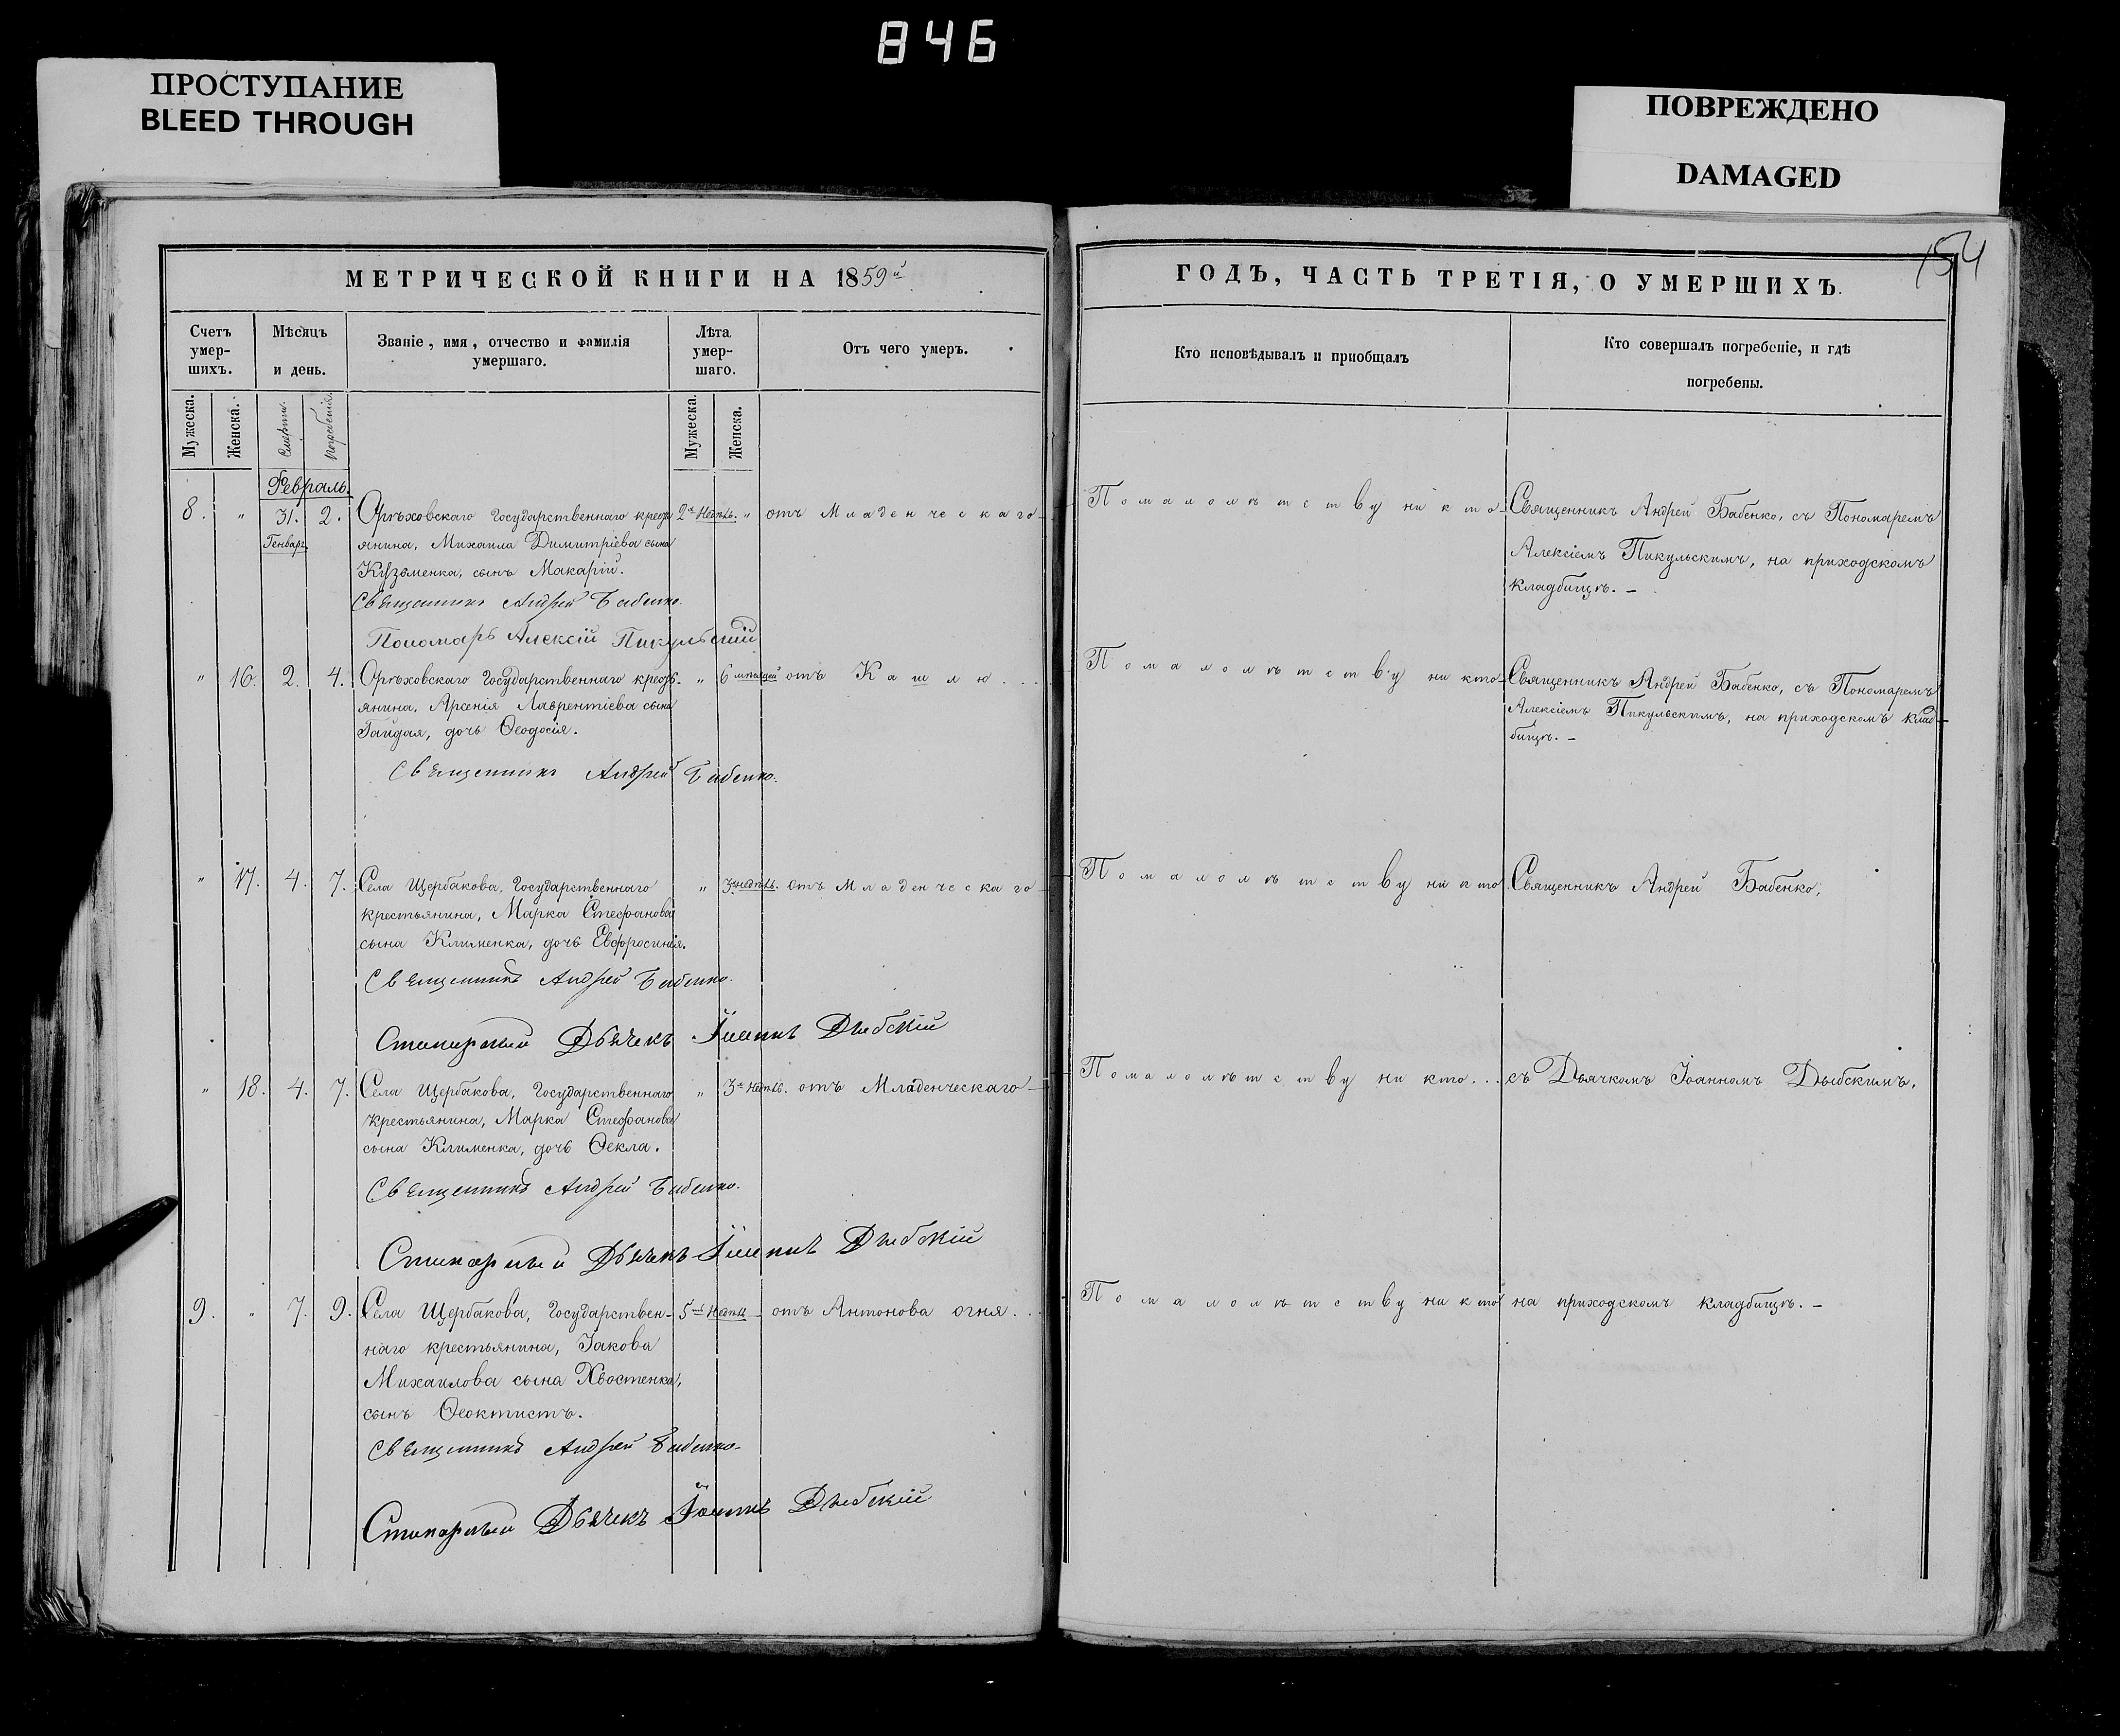 846
ПРОСТУПАНИЕ
BLEED THROUGH
ПОВРЕЖДЕНО
DAMAGED
154
МЕТРИЧЕСКОЙ КНИГИ НА 1859й
ГОДЪ, ЧАСТЬ ТРЕТІЯ, О УМЕРШИХЪ.
Счетъ умер- шихъ.
Мѣсяцъ и день.
Званіе, имя, отчество и фамилія умершаго.
Лѣта умер- шаго.
Отъ чего умеръ.
Кто исповѣдывалъ и пріобщалъ
Кто совершалъ погребеніе, и гдѣ погребены.
Мужеска. Женска. Смерти. Погребенія. Мужеска. Женска.
Февраль.
8. " 31. 2. Орѣховскаго государственнаго крест 2хъ Недѣль. " отъ Младенческаго
Генваря
янина, Михаила Димитріева сына
Кузьменка, сынъ Макарій.
Священникъ Андрей Бабенко.
Пономарь Алексій Пикульскій
По малолѣтству никто
Священникъ Андрей Бабенко, съ Пономаремъ
Алексіемъ Пикульскимъ, на приходскомъ
кладбищѣ. –
" 16. 2. 4. Орѣховскаго Государственнаго крест- " 6 мѣсяцей отъ Кашлю...
янина, Арсенія Лаврентіева сына
Гайдая, дочь Ѳеодосія.
Священникъ Андрей Бабенко.
По малолѣтству никто
Священникъ Андрей Бабенко, съ Пономаремъ
Алексіемъ Пикульскимъ, на приходскомъ клад-
бищѣ. –
" 17. 4. 7. Села Щербакова, Государственнаго " 3 недѣль. отъ Младенческаго
крестьянина, Марка Стефанова
сына Клименка, дочь Евфросинія.
Священникъ Андрей Бабенко.
Дьячекъ Іоаннъ Дыбскій
По малолѣтству никто
Священникъ Андрей Бабенко,
" 18. 4. 7. Села Щербакова, Государственнаго " 3хъ недѣль. отъ Младенческаго
крестьянина, Марка Стефанова
сына Клименка, дочь Ѳекла.
Священникъ Андрей Бабенко.
Дьячекъ Іоаннъ Дыбскій
По малолѣтству никто...
съ Дьячкомъ Іоанномъ Дыбскимъ,
9. " 7. 9. Села Щербакова, Государствен- 5 Недѣль отъ Антонова огня...
наго крестьянина, Іакова
Михаилова сына Хвостенка,
сынъ Ѳеоктистъ.
Священникъ Андрей Бабенко
Дьячекъ Іоаннъ Дыбскій
По малолѣтству никто
на приходскомъ кладбищѣ. –